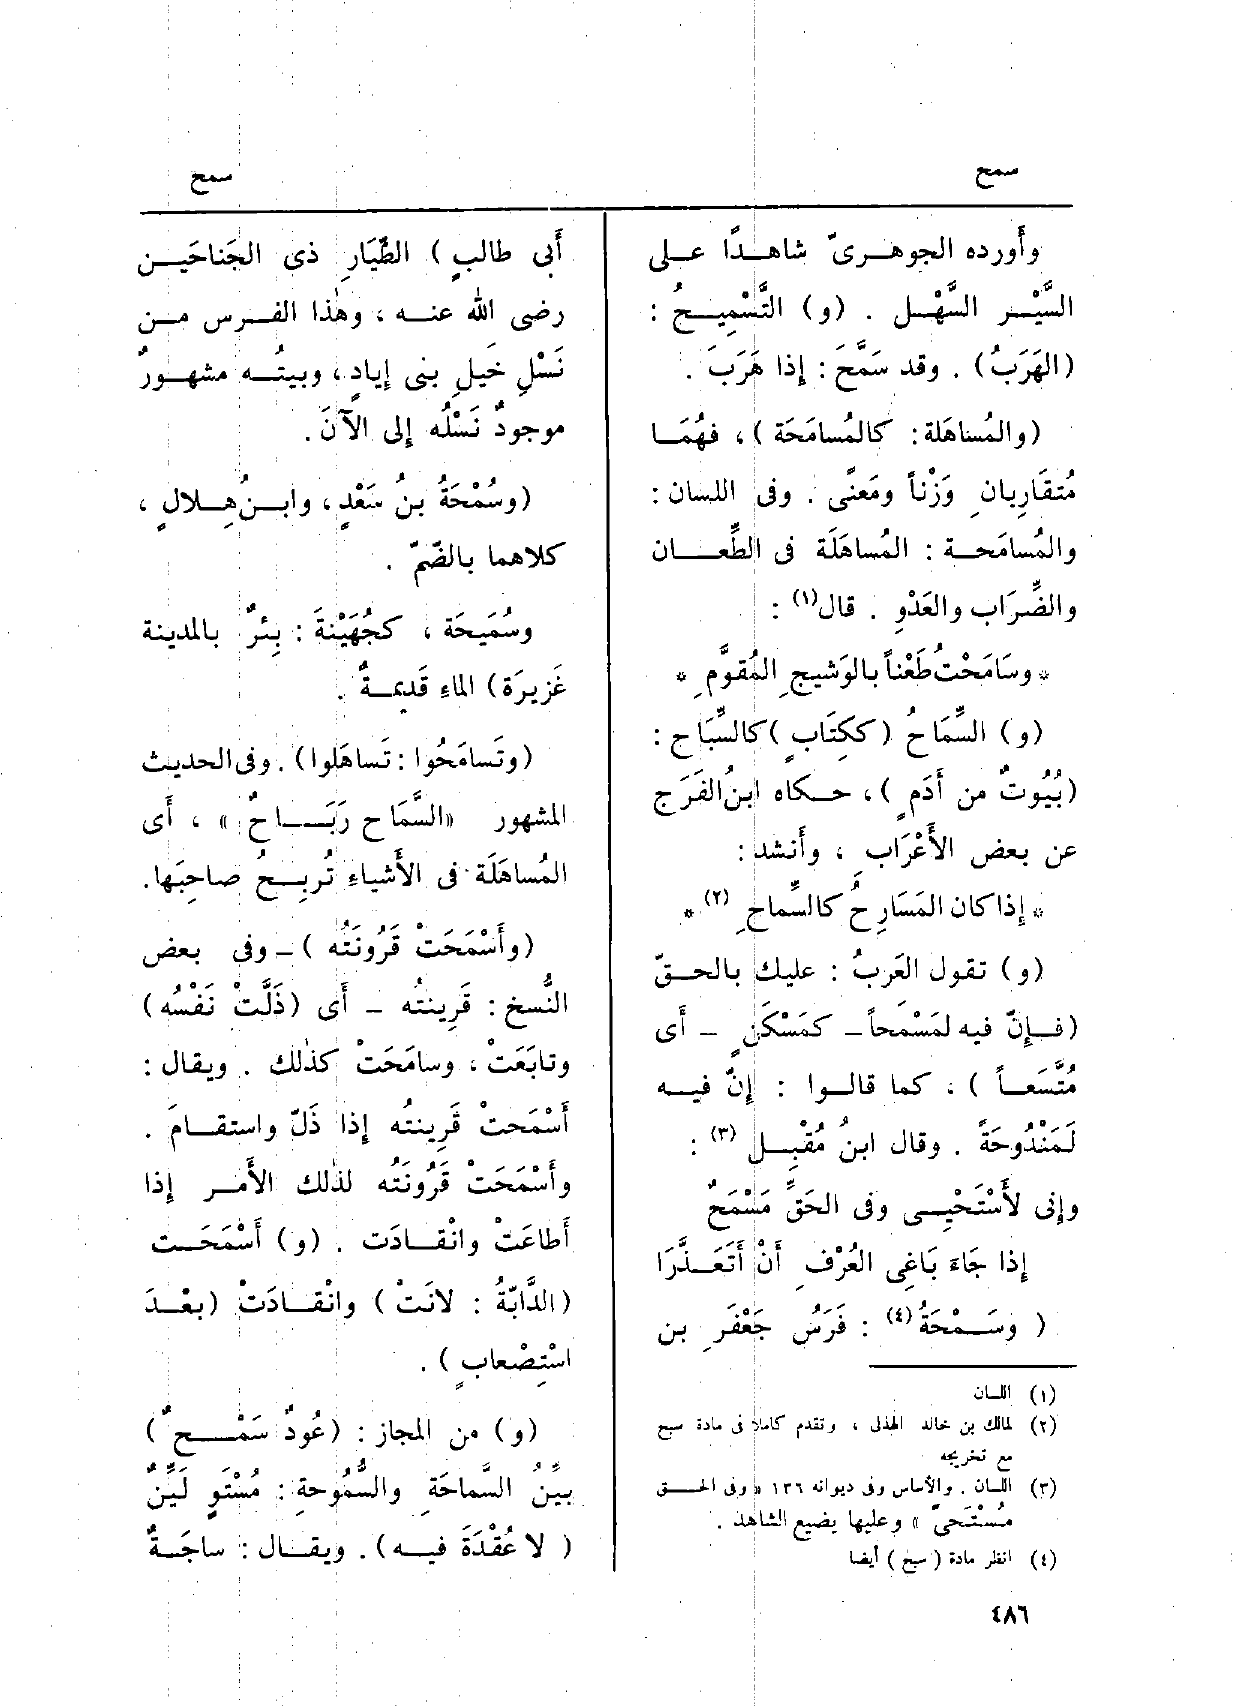 سمح
سمح
وأَورده الجوهرىّ شاهدًا على
السَّيْرِ السَّهْلِ . (و) التَّسْمِيحُ :
(الهَرَبُ) . وقد سَمَّحَ : إذا هَرَبَ .
(والمُساهَلة: كالمُسامَحَة) ، فهُمَا
مُتقَارِبانِ وَزْناً ومَعنًى . وفى اللسان :
والمُسامَحة : المُساهَلَة فى الطِّعان
والضِّرَاب والعَدْوِ . قال(١) :
* وسَامَحْتُ طَعْناً بالوَشيجِ المُقوَّمِ *
(و) السِّمَاحُ (ككِتَابٍ) كالسِّبَاح :
(بُيُوتٌ من أَدَمٍ) ، حكاه ابنُ الفَرَج
عن بعض الأَعْرَابِ ، وأَنشد :
* إذا كان المَسَارِحُ كالسِّماحِ (٢) *
(و) تقول العَربُ : عليك بالحقّ
(فإِنّ فيه لمَسْمَحاً – كمَسْكَنٍ – أَى
مُتَّسَعاً ) ، كما قالوا : إنّ فيه
لَمَنْدُوحَةً . وقال ابنُ مُقْبِلٍ (٣) :
وإنى لأَسْتَحْيِى وفى الحَقِّ مَسْمَحٌ
إذا جَاءَ بَاغِى العُرْفِ أَنْ أَتَعَذَّرَا
( وسَمْحَةُ(٤) : فَرَسُ جَعْفَرِ بن
(١) اللسان
(٢) لمالك بن خالد الهذلى ، وتقدم كاملا فى مادة سبح
مع تخريجه
(٣) اللسان . والأساس وفى ديوانه ١٣٦ « وفى الحق
مُسْتَحىً » وعليها يضيع الشاهد .
(٤) انظر مادة ( سبح ) أيضا
أَبى طالبٍ ) الطَّيَارِ ذى الجَناحَين
رضى الله عنه ، وهٰذا الفرس من
نَسْلِ خَيلِ بنى إيادٍ، وبيتُه مشهورٌ
موجودٌ نَسْلُه إلى الآنَ .
(وسُمْحَةُ بنُ سَعْدٍ، وابنُ هِلالٍ ،
كلاهما بالضّمّ .
وسُمَيحَة ، كجُهَيْنَةَ : بئرٌ بالمدينة
غَزيرَة) الماء قَديمةٌ .
(وتَسامَحُوا : تَساهَلوا) . وفى الحديث
المشهور «السَّمَاح رَبَاحٌ » ، أَى
المُساهَلَة فى الأَشياءِ تُربِحُ صاحِبَها.
(وأَسْمَحَتْ قَرُونَتُه ) – وفى بعض
النُّسخ : قَرِينتُه – أَى (ذَلَّتْ نَفْسُه)
وتابَعَتْ ، وسامَحَتْ كذٰلك . ويقال :
أَسْمَحتْ قَرِينتُه إذا ذَلّ واستقامَ .
وأَسْمَحَتْ قَرُونَتُه لذٰلك الأَمر إذا
أَطاعَتْ وانْقادَت . (و) أَسْمَحَت
(الدّابَّةُ : لانَتْ ) وانْقادَتْ (بعْدَ
اسْتِصْعابٍ ) .
(و) من المجاز : (عُودٌ سَمْحٌ)
بيِّنُ السَّماحَةِ والسُّمُوحةِ : مُسْتَوٍ لَيِّنٌ
( لا عُقْدَةَ فيه) . ويقال : ساجَةٌ
٤٨٦